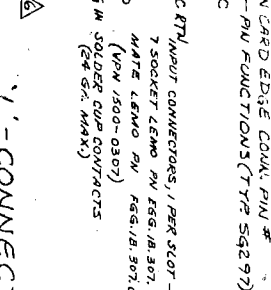 N CARD EDGE CONN. PIN #
- PIN FUNCTIONS (TYP. 562297)
C
C RTN
INPUT CONNECTORS, 1 PER SLOT -
7 SOCKET LEMO PN EGG.1B.307.
MATE LEMO PN FGG.1B.307.C
(VPN 1500-0307)
G IN SOLDER CUP CONTACTS
(24 GA. MAX.)
6
'1'-CONNEC